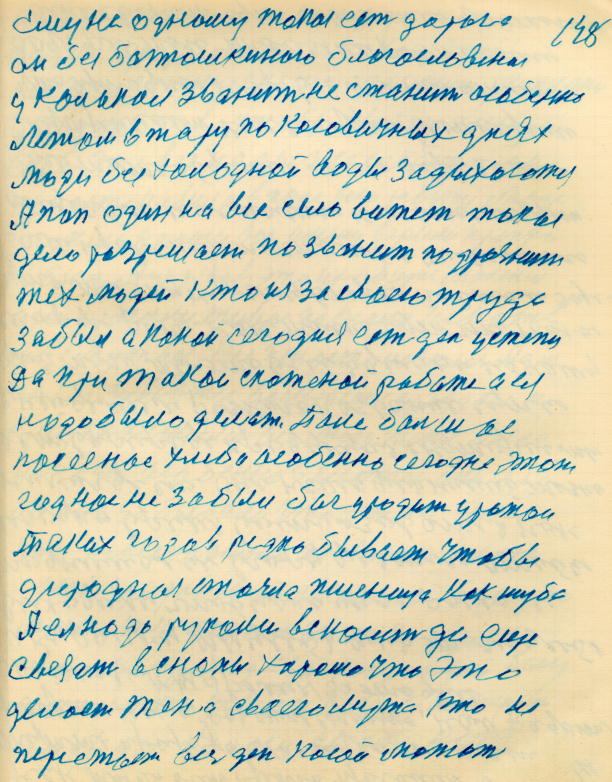 ему не одному такая ест дорога
148
он без батюшкиного благословения
у колокол званит не станит особенно
летом в жару по косовичных днях
люди без холодной воды задыхаются
А поп один на все село
дело разрешает по званит
тех людей кто из за своего труда
забыл а какой сегодня ест ден
Да при такой сложеной работе а ея
надо было делат. Поле балшое
посееное хлеба особенно сегодне этом
годное не забыл бог уродит урожай
Таких годов редко бывает чтобы
стояла пшеница как шуба
А ея надо руками вскосит да еще
свезат в снопы хорошо что это
делает жена своего мужа кто не
перестает вез ден косой